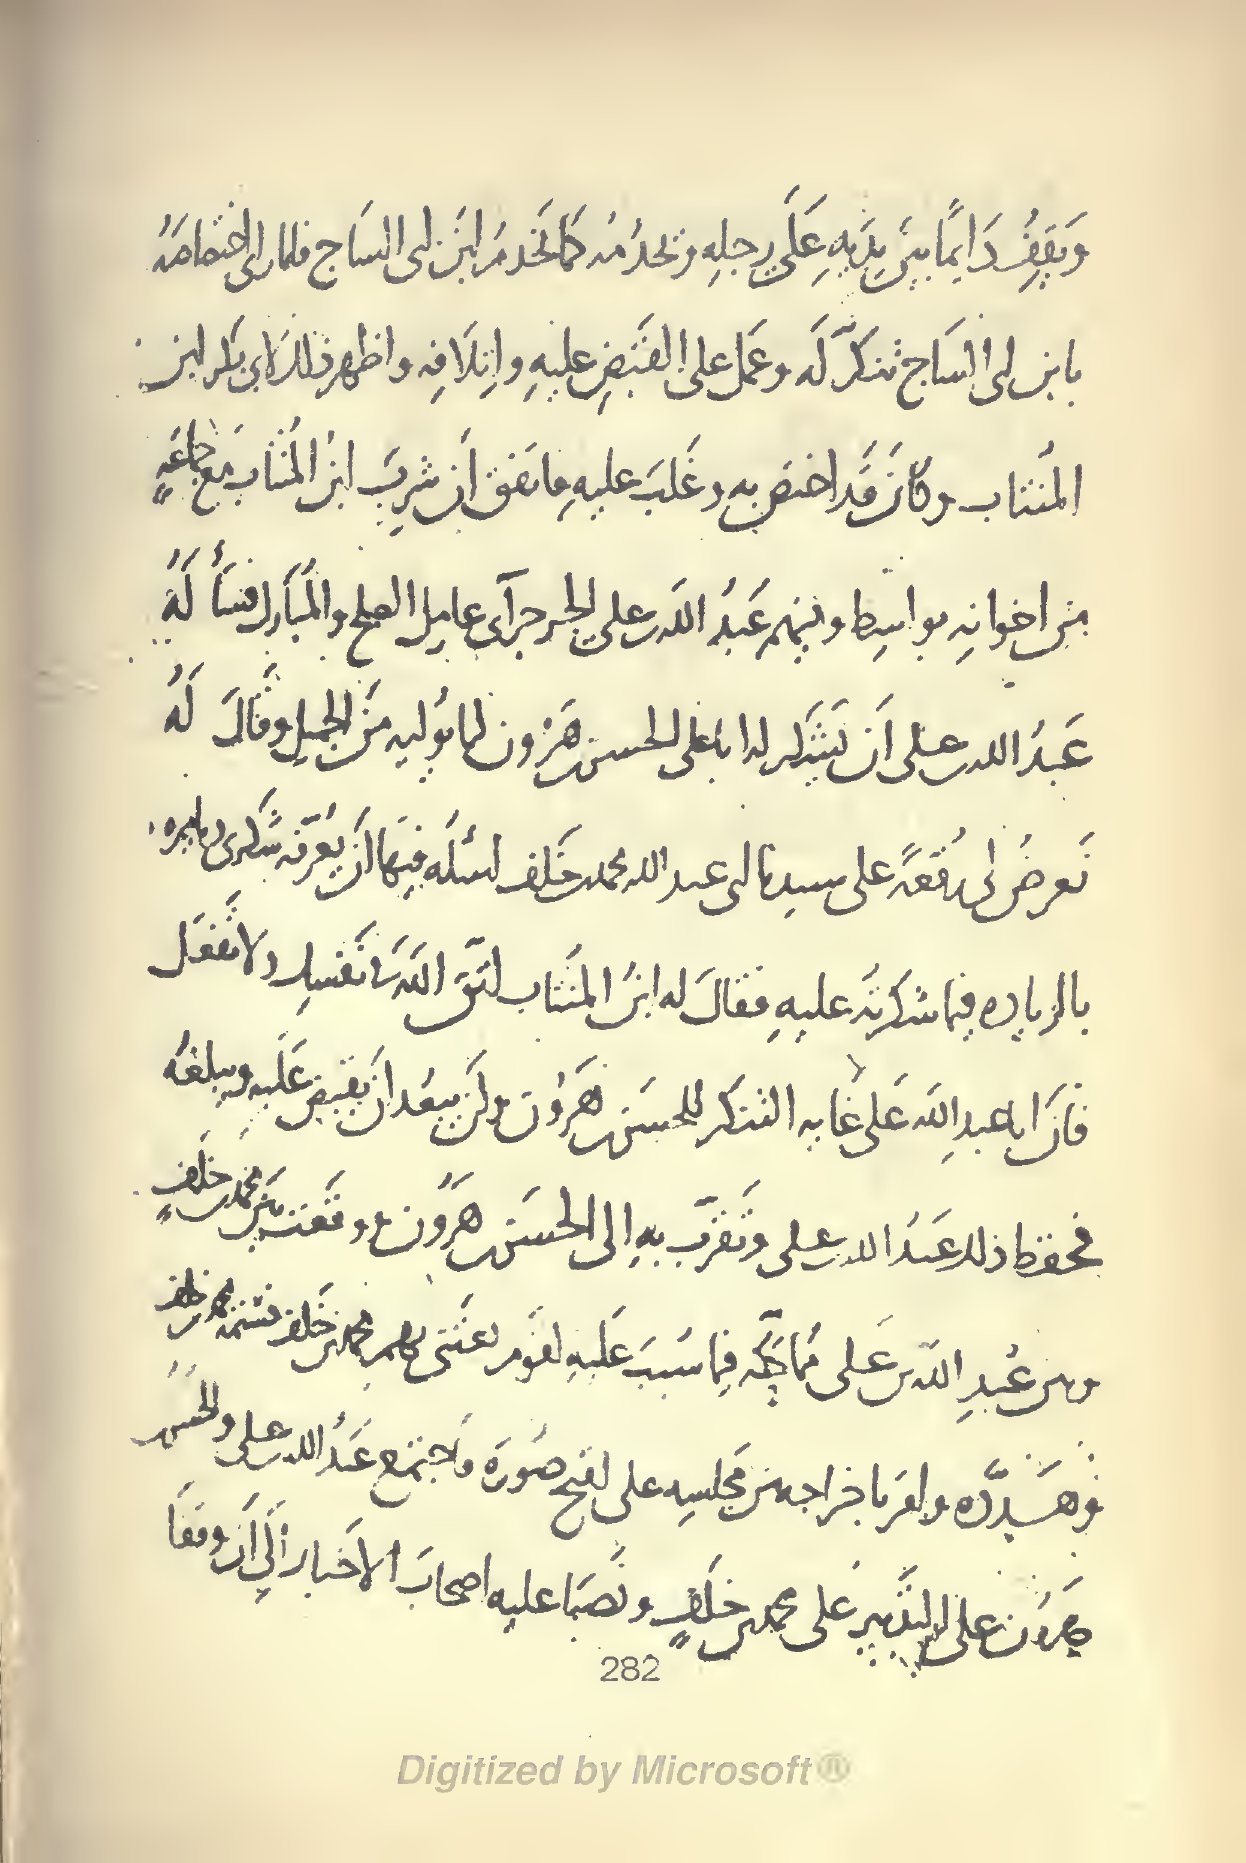 وَيَقِفُ دَايمًا بين يدَيهِ عَلَى رجلِهِ ويخدُمُه كَمَا يَخدمُ ابنَ ابى السَاج فلما راى اختصاصَهُ
بابن ابى الساج تنكرَّ لَه وعَمل على القَبَضِ عليهِ واِتلاَفِه واظهر ذلكَ لاِبى بكر ابن
المُنتاب وكانَ قَد اختصَ بهِ وغَلَبَ عليهِ فاتفق أن شرِبَ ابنُ المُنتاب مع جماعَةٍ
من اخوانِه بواسِط وفيهم عَبدُ اللّه بن على الجرجرآى عامِل الصلح والمُبارَك فسَألَهُ
عَبدُ الله بن على أن يَتَشَكر له ابا على الحسن بن هَرُون لما يوُليهِ مِنَ الجميلِ وقَالَ لَهُ
تَعرضُ لى رُقعَةً على سيدنا ابى عبد الله محمد بن خَلف اسئله فيهَا أن يُعَرّفه شكرى ويامره
بالزياده فيما شكرتُه عليهِ فقالَ له ابنُ المنتاب اتّق اللّهَ فى نَفسِك ولا تَفعَل
فانَ ابا عبدِ اللّه عَلَى غَايه التنكر للحسَن بن هَرُون ولَن يبعُد اَن يقبِضَ عَلَيه ويبلغَهُ
فحفِظ ذلك عَبدُ الله بن على وتَقرَّبَ بهِ الى الحسَن بن هَرُون ووقَعت بَين محمد بن خلفٍ
وبين عُبدِ اللّه بن عَلى مُمَاحَكّه فيما سُببَ عَلَيهِ لقَوم بهم محمد بن خَلف فشتمه محمد بن خلف
وَهَدّدَه وامَر باخراجهِ من مَجلسِه على اقبح صُورَة فاجتمع عَبدُ الله بن على والحسَن بن
هرُون على التدبير على محمد بن خلَفٍ ونصَبَا عليهِ اصحابَ الاَخبار إلى أن وقفَا
282
Digitized by Microsoft®